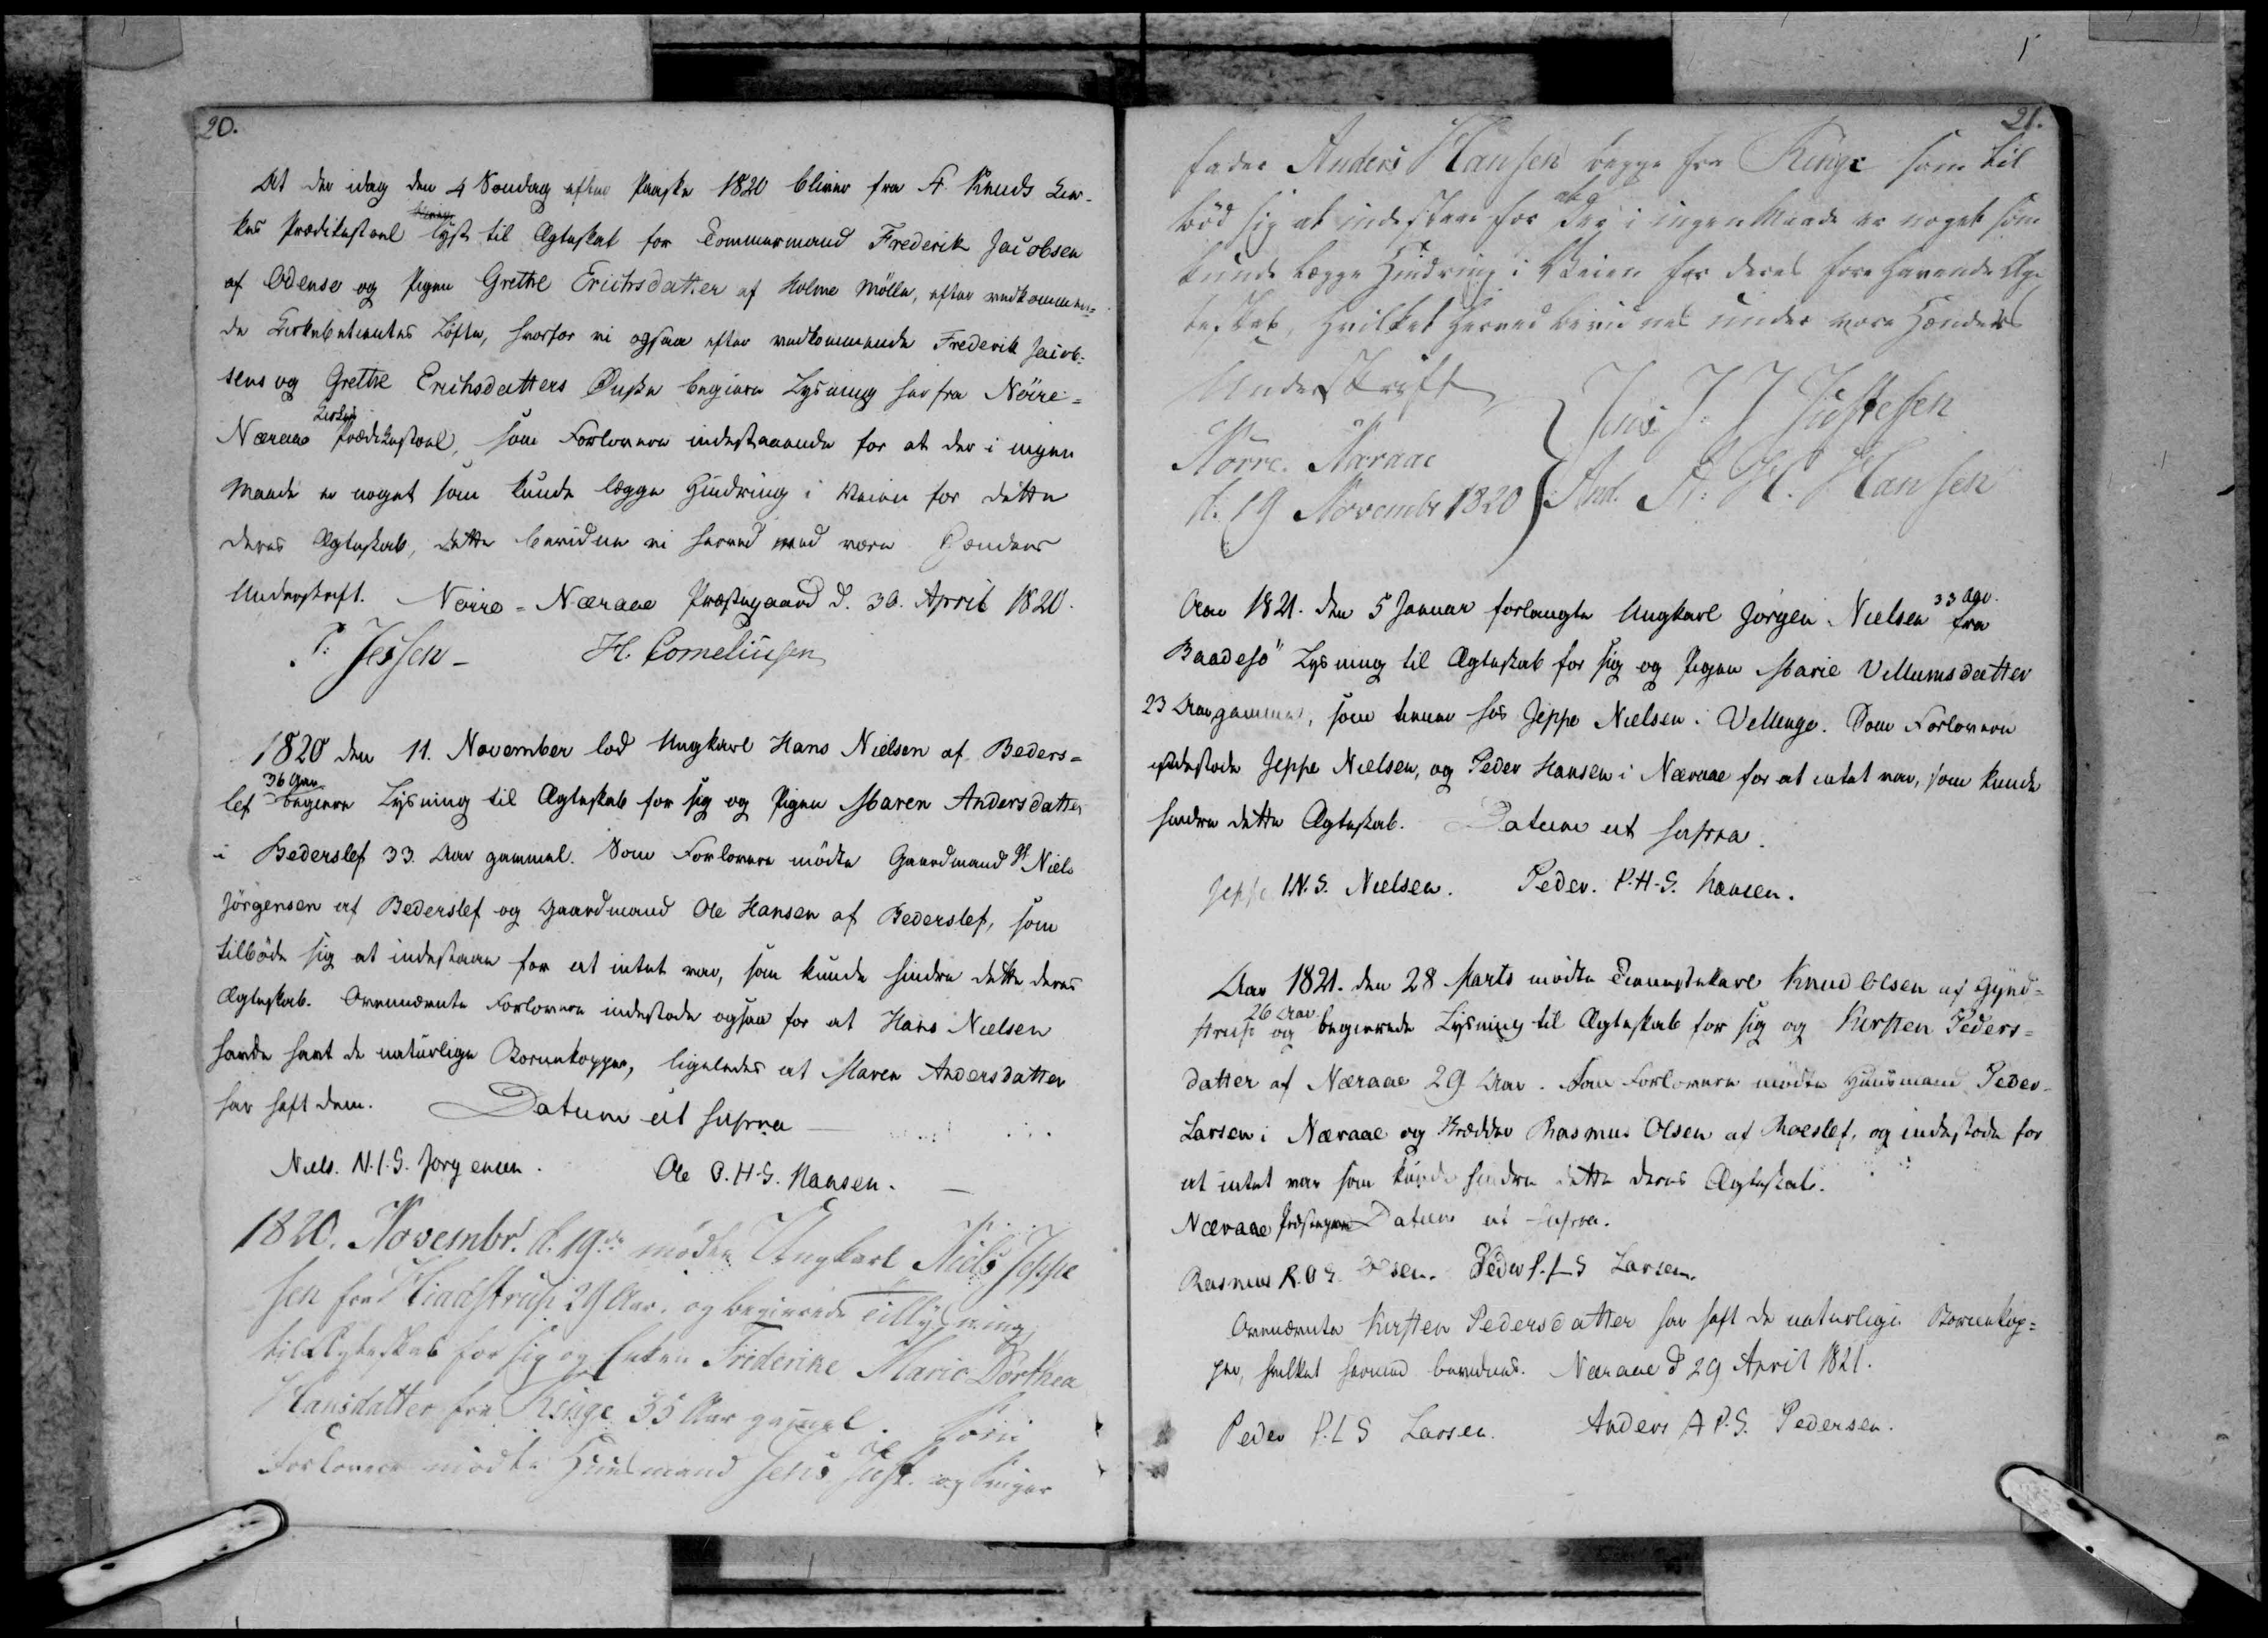 20.
At der idag den 4 Søndag efter Paaske 1820 bliver fra St. Knuds Kir-
kes Prædikestoel lyst til Ægteskab for Tømmermand Frederik Jacobsen
af Odense og Pigen Grethe Erichsdatter af Holme Mølle, efter vedkommen-
de Kirkebetientes Løfte, hvorfor vi ogsaa efter vedkommende Frederik Jacob-
sens og Grethe Erichsdatters Ønske begiere Lysning her fra Nörre-
Næraae Kirkes Prædikestoel, som Forlovere indestaaende for at der i ingen
Maade er noget som kunde lægge Hindring i Veien for dette
deres Ægteskab, dette bevidne vi herved med vore Hænders
Underskrift. Nörre-Næraae Præstegaard d. 30. April 1820.
P. Jessen - H. Corneliussen
1820 den 11. November lod Ungkarl Hans Nielsen af Beders-
lef 36 Aar begiere Lysning til Ægteskab for sig og Pigen Maren Andersdatter
i Bederslef 33. Aar gammel. Som Forlovere mødte Gaardmand Niels
Jörgensen af Bederslef og Gaardmand Ole Hansen af Bederslef, som
tilböde sig at indestaae for at intet var, som kunde hindre dette deres
Ægteskab. Ovennævnte Forlovere indestode ogsaa for at Hans Nielsen
havde havt de naturlige Børnekopper, ligeledes at Maren Andersdatter
har haft dem. Datum ut supra
Niels. N.I.S. Jörgensen. Ole O.H.S. Hansen.
1820. Novembr. d. 19de mødte Ungkarl Niels Jeppe
sen fra Tiadstrup 29 Aar. og begierede Tillysning
til Ægteskab for sig og Enken Friderike Marie Dorthea
Hansdatter fra Kruge 35 Aar gammel. Som
Forlovere mødte Huusmand Jens Just. og
21.
fader Anders Hansen begge fra som til
bød sig at indestaae for at der i ingen Maade er noget som
kunde lægge Hindring i Veien for deres forehavende Æg-
teskab, hvilket herved bevidnes under vore Hænders
Underskrift
Nörre. Næraae
d. 19 November 1820
Jens J. J Justesen
And. A. H. Hansen
Aar 1821. den 5 Januar forlangte Ungkarl Jörgen Nielsen 33 Aar. fra
Baadesö Lysning til Ægteskab for sig og Pigen Marie Villumsdatter
23 Aar gammel, som tiener hos Jeppe Nielsen i Vellinge. Som Forlovere
indestode Jeppe Nielsen, og Peder Hansen i Næraae for at intet var, som kunde
hindre dette Ægteskab. Datum ut supra.
Jeppe I.N.S. Nielsen. Peder. P.H.S. Hansen.
Aar 1821. den 28 Marts mødte Tienestekarl Knud Olsen af Gynd-
strup 26 Aar og begierede Lysning til Ægteskab for sig og Kirsten Peders-
datter af Næraae 29 Aar. Som Forlovere mødte Huusmand Peder
Larsen i Næraae og Skrædder Rasmus Olsen af Roeslef, og indestode for
at intet var som kunde hindre dette deres Ægteskab.
Næraae Præstegaard Datum ut supra.
Rasmus R.O.S. Olsen. Peder P.L.S Larsen.
Ovennævnte Kirsten Pedersdatter har haft de naturlige Børnekop-
per, hvilket herved bevidnes. Næraae d 29 April 1821.
Peder P.L S Larsen. Anders A P.S. Pedersen.